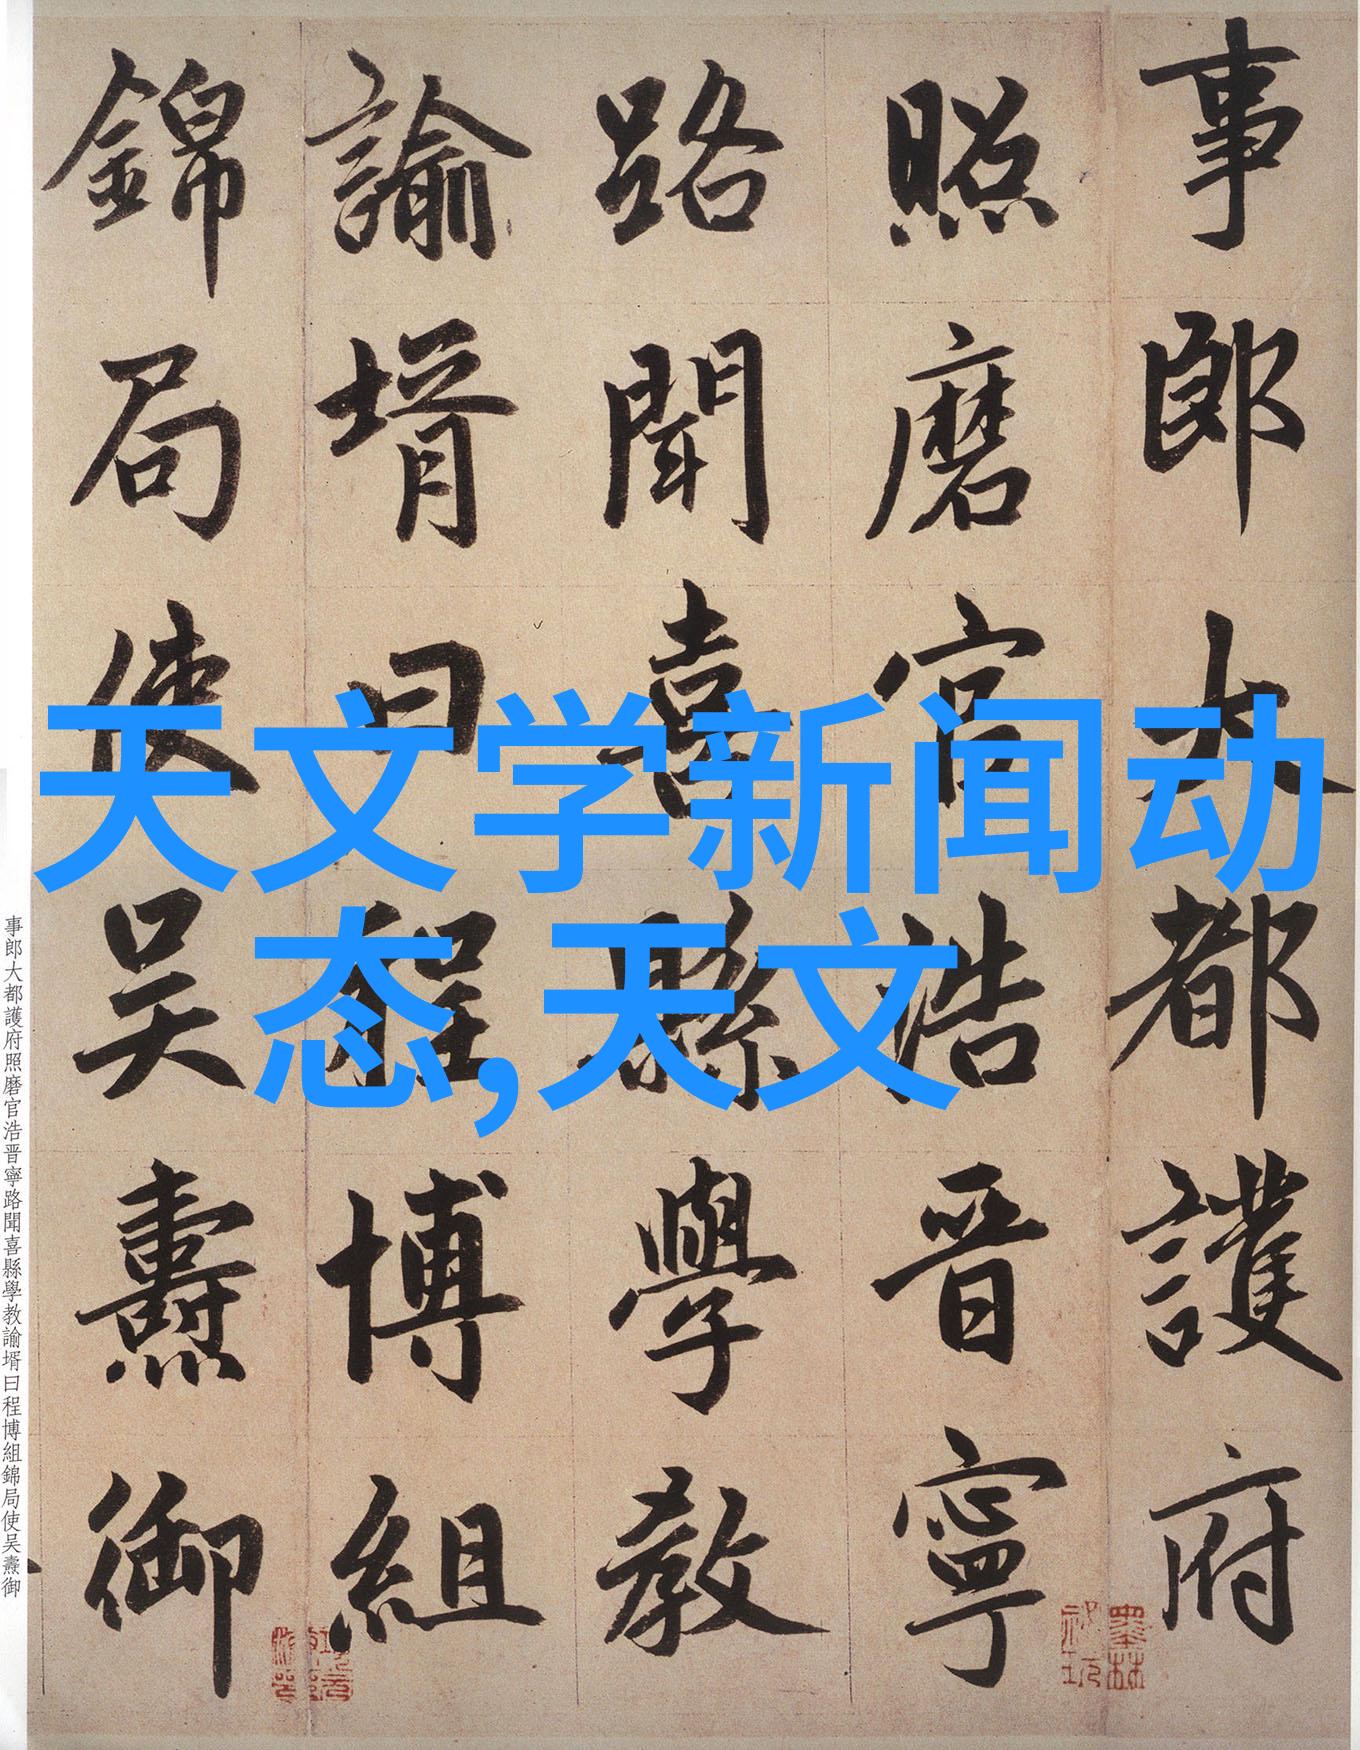 事郎大都護府
照磨官浩晋寧
路聞喜縣學教
諭壻曰程博組
錦局使吴燾御
天文学新闻动
态,天文
事郎大都護府照磨官浩晋寧路聞喜縣學教諭壻曰程博組錦局使吴燾御